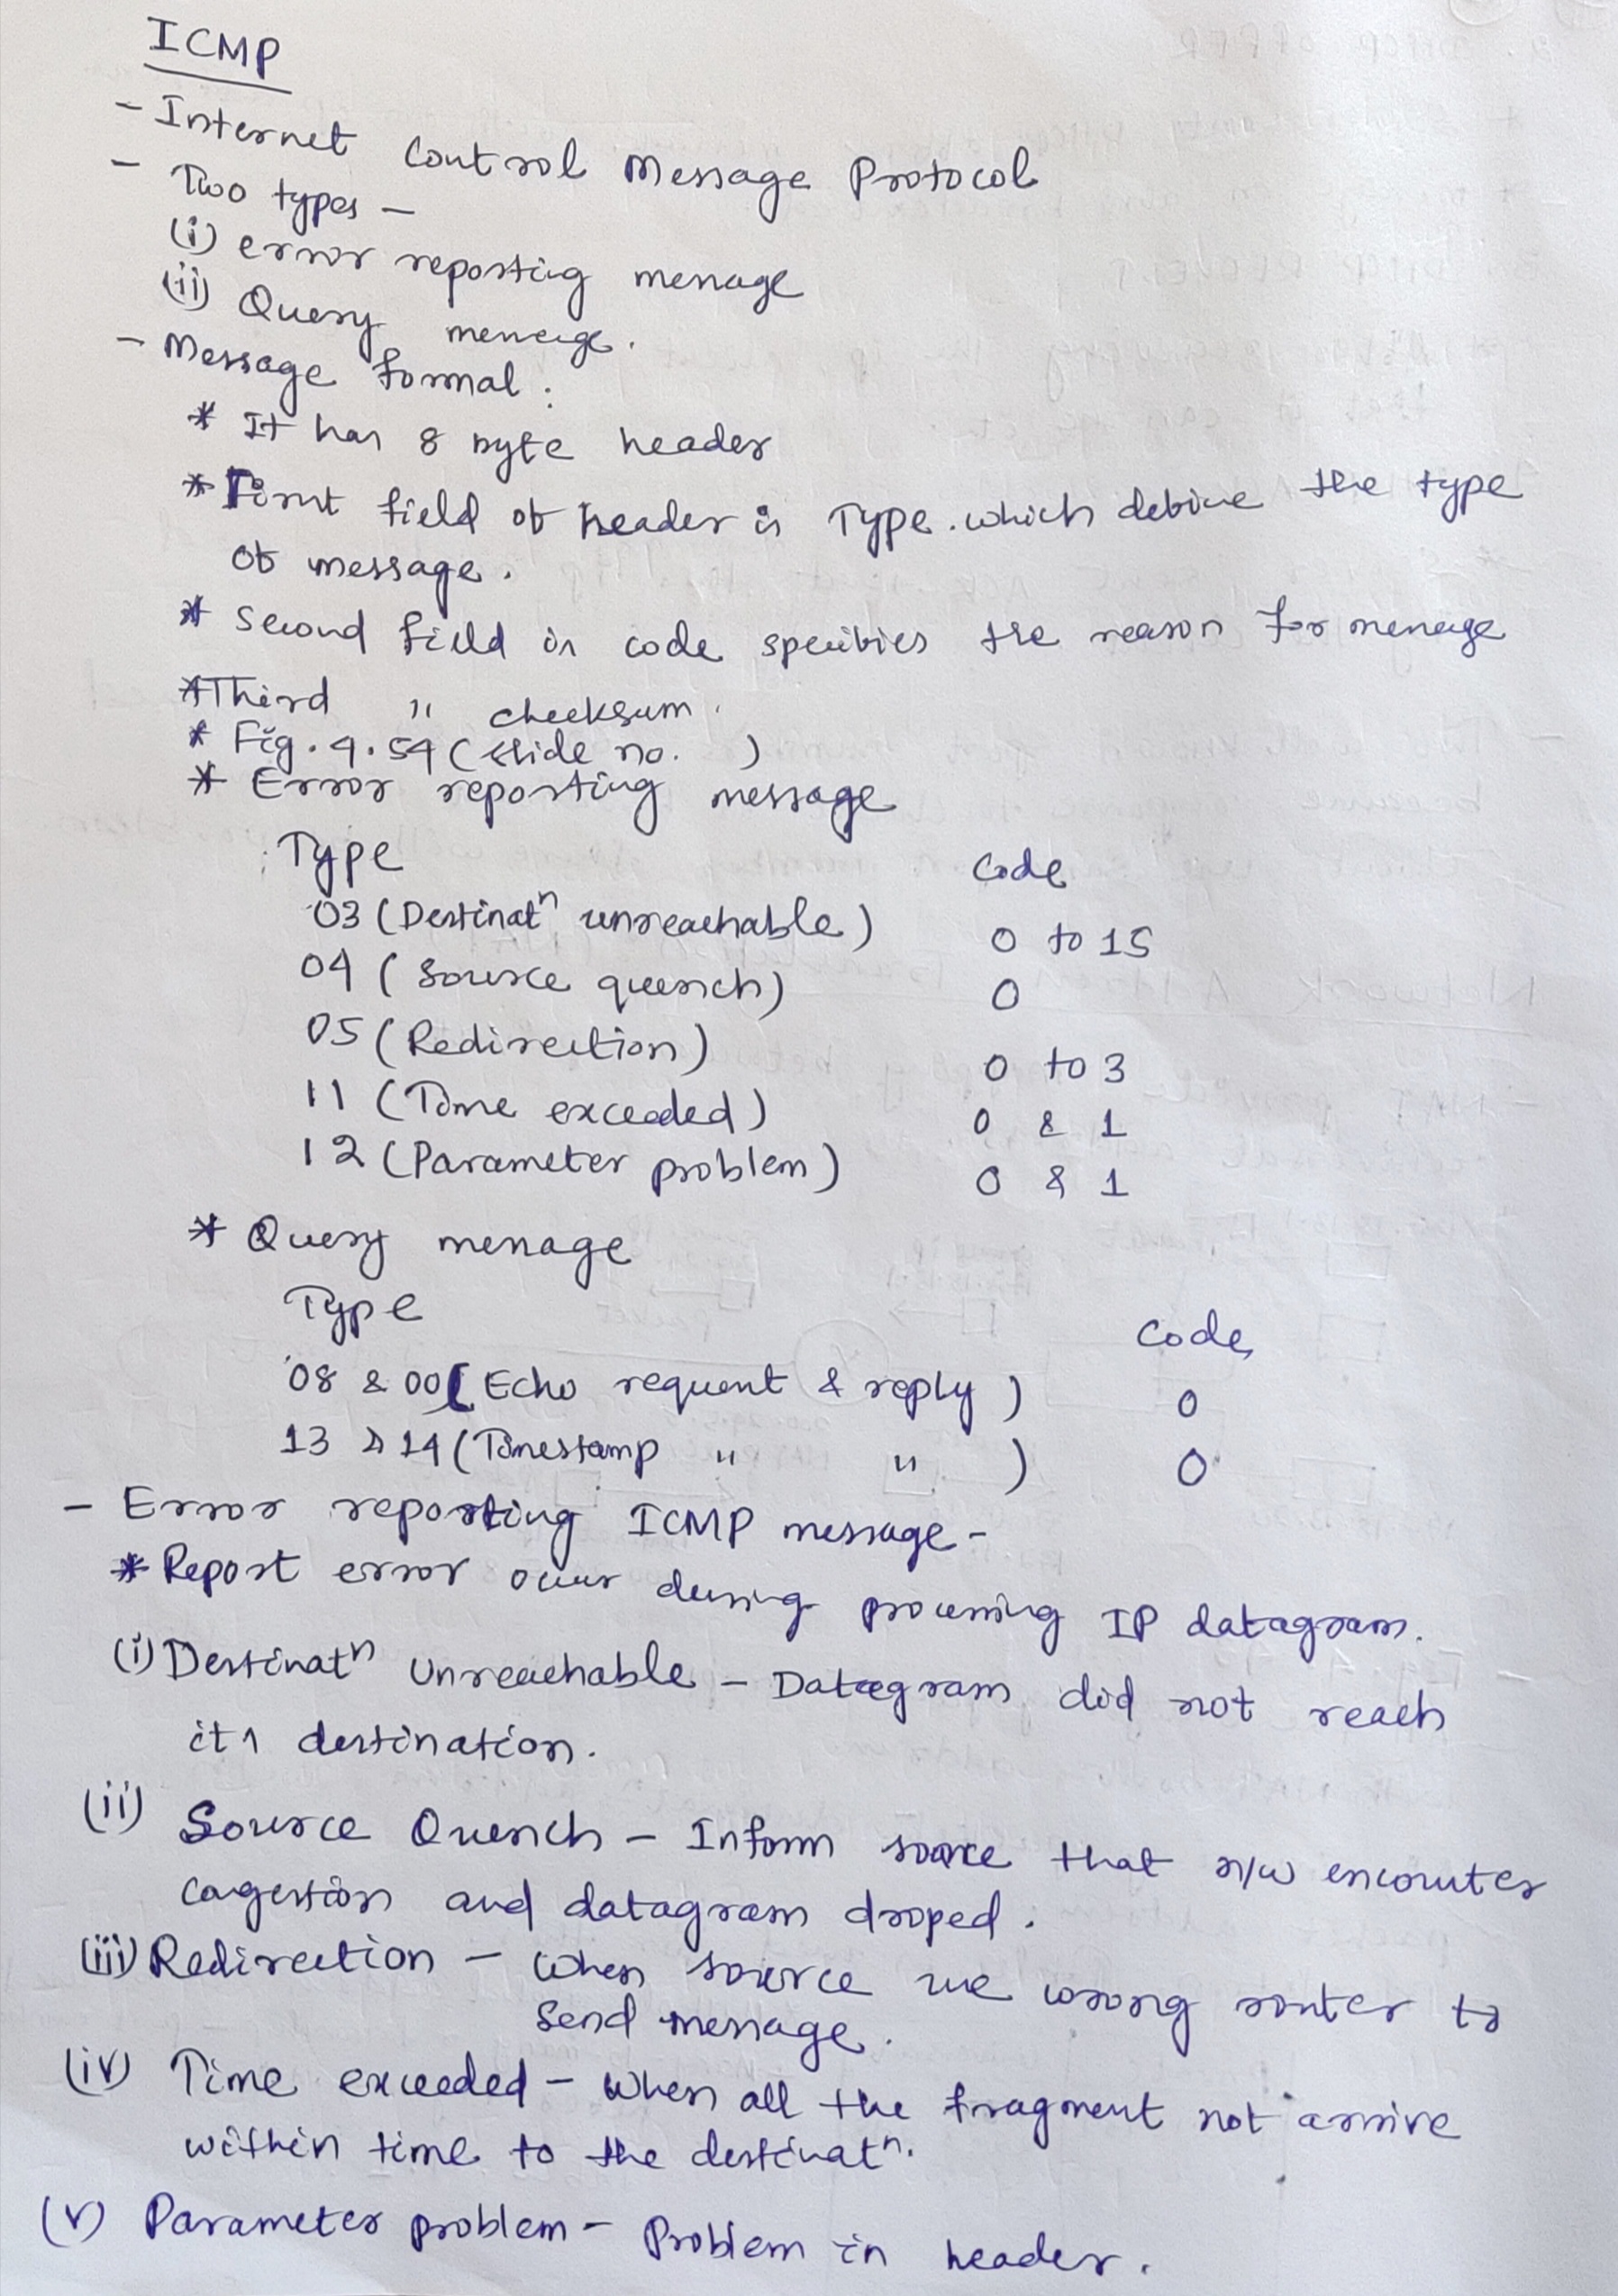 ICMP
- Internet Control Message Protocol
- Two types -
(i) error reporting message
(ii) Query message.
- Message format :
* It has 8 byte header
* First field of header is Type. which define the type
of message.
* Second field is code specifies the reason for message
* Third " checksum.
* Fig. 9.54 (slide no. )
* Error reporting message
Type Code
03 (Destinatⁿ unreachable) 0 to 15
04 (Source quench) 0
05 (Redirection) 0 to 3
11 (Time exceeded) 0 & 1
12 (Parameter problem) 0 & 1
* Query message
Type Code
08 & 00 (Echo request & reply) 0
13 & 14 (Timestamp " " ) 0
- Error reporting ICMP message -
* Report error occur during processing IP datagram.
(i) Destinatⁿ Unreachable - Datagram did not reach
its destination.
(ii) Source Quench - Inform source that n/w encouter
congestion and datagram droped.
(iii) Redirection - When source use wrong router to
send message.
(iv) Time exceeded - When all the fragment not arrive
within time to the destinatⁿ.
(v) Parameter problem - Problem in header.